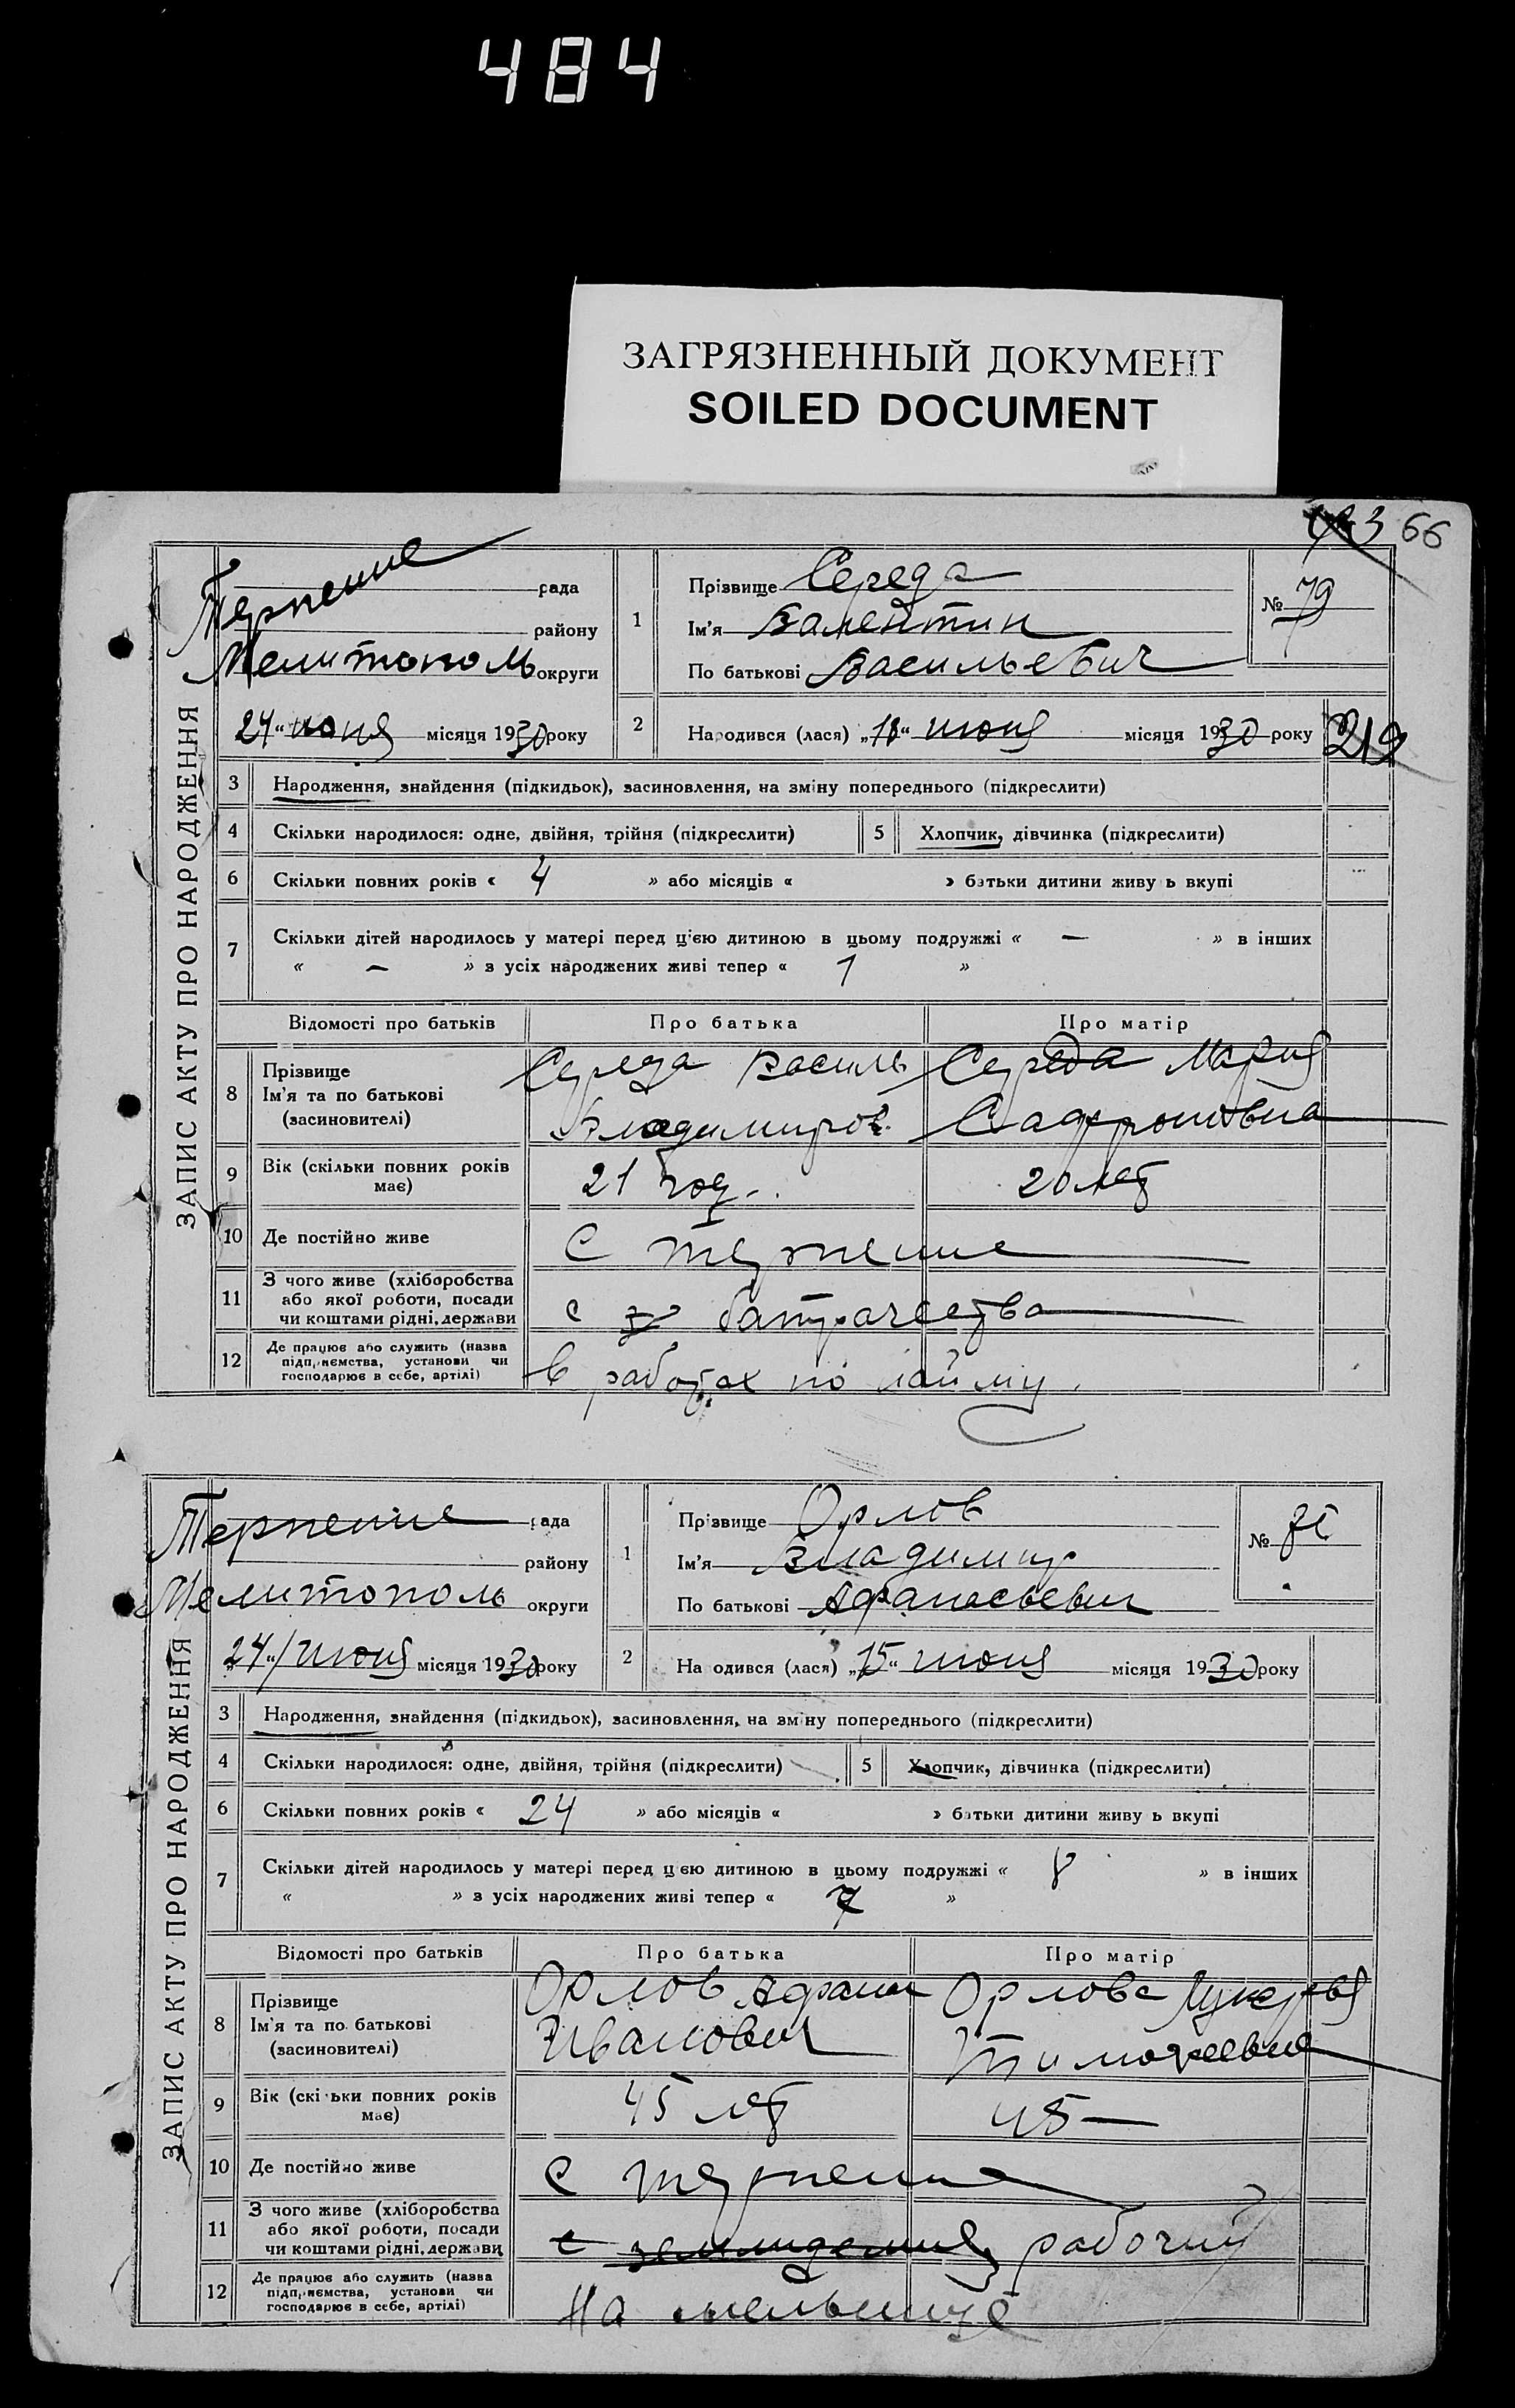 484
ЗАГРЯЗНЕННЫЙ ДОКУМЕНТ
SOILED DOCUMENT
66
ЗАПИС АКТУ ПРО НАРОДЖЕННЯ
Терпение рада
району
Мелитополь округи
24 "июня місяця 1930 року
1 Прізвище Середа
Ім'я Валентин
По батькові Васильевич
№ 79
2 Народився (лася) „18" июня місяця 1930 року
212
3 Народження, знайдення (підкидьок), засиновлення, на зміну попереднього (підкреслити)
4 Скільки народилося: одне, двійня, трійня (підкреслити) 5 Хлопчик, дівчинка (підкреслити)
6 Скільки повних років « 4 » або місяців « » батьки дитини живу ь вкупі
7 Скільки дітей народилось у матері перед цією дитиною в цьому подружжі « — » в інших
« — » з усіх народжених живі тепер « 1 »
Відомості про батьків Про батька Про матір
8 Прізвище Ім'я та по батькові (засиновителі)
Середа Василь Середа Мария
Владимиров. Сафроновна
9 Вік (скільки повних років має) 21 год.. 20 лет
10 Де постійно живе С терпение
11 З чого живе (хліборобства або якої роботи, посади чи коштами рідні, держави с батрачества
12 Де працює або служить (назва підприємства, установи чи господарює в себе, артілі) в работах по найму.
ЗАПИС АКТУ ПРО НАРОДЖЕННЯ
Терпение рада
району
Мелитополь округи
„24"/ июня місяця 1930 року
1 Прізвище Орлов
Ім'я Владимир
По батькові Афанасьевич
№
2 На одився (лася) „15" июня місяця 1930 року
3 Народження, знайдення (підкидьок), засиновлення, на зміну попереднього (підкреслити)
4 Скільки народилося: одне, двійня, трійня (підкреслити) 5 Хлопчик, дівчинка (підкреслити)
6 Скільки повних років « 24 » або місяців « » батьки дитини живу ь вкупі
7 Скільки дітей народилось у матері перед цією дитиною в цьому подружжі « 8 » в інших
« » з усіх народжених живі тепер « 7 »
Відомості про батьків Про батька Про матір
8 Прізвище Ім'я та по батькові (засиновителі)
Орлов Афанас Орлова Лукерья
Иванович Тимофеевна
9 Вік (скі ьки повних років має) 45 лет 45 —
10 Де постійно живе С терпение
11 З чого живе (хліборобства або якої роботи, посади чи коштами рідні, держави рабочий
12 Де працює або служить (назва підприємства, установи чи господарює в себе, артілі) На мельнице